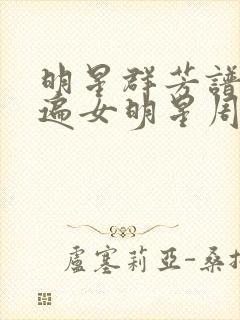 明星群芳譜
遍女明星周
盧塞莉亞-桑